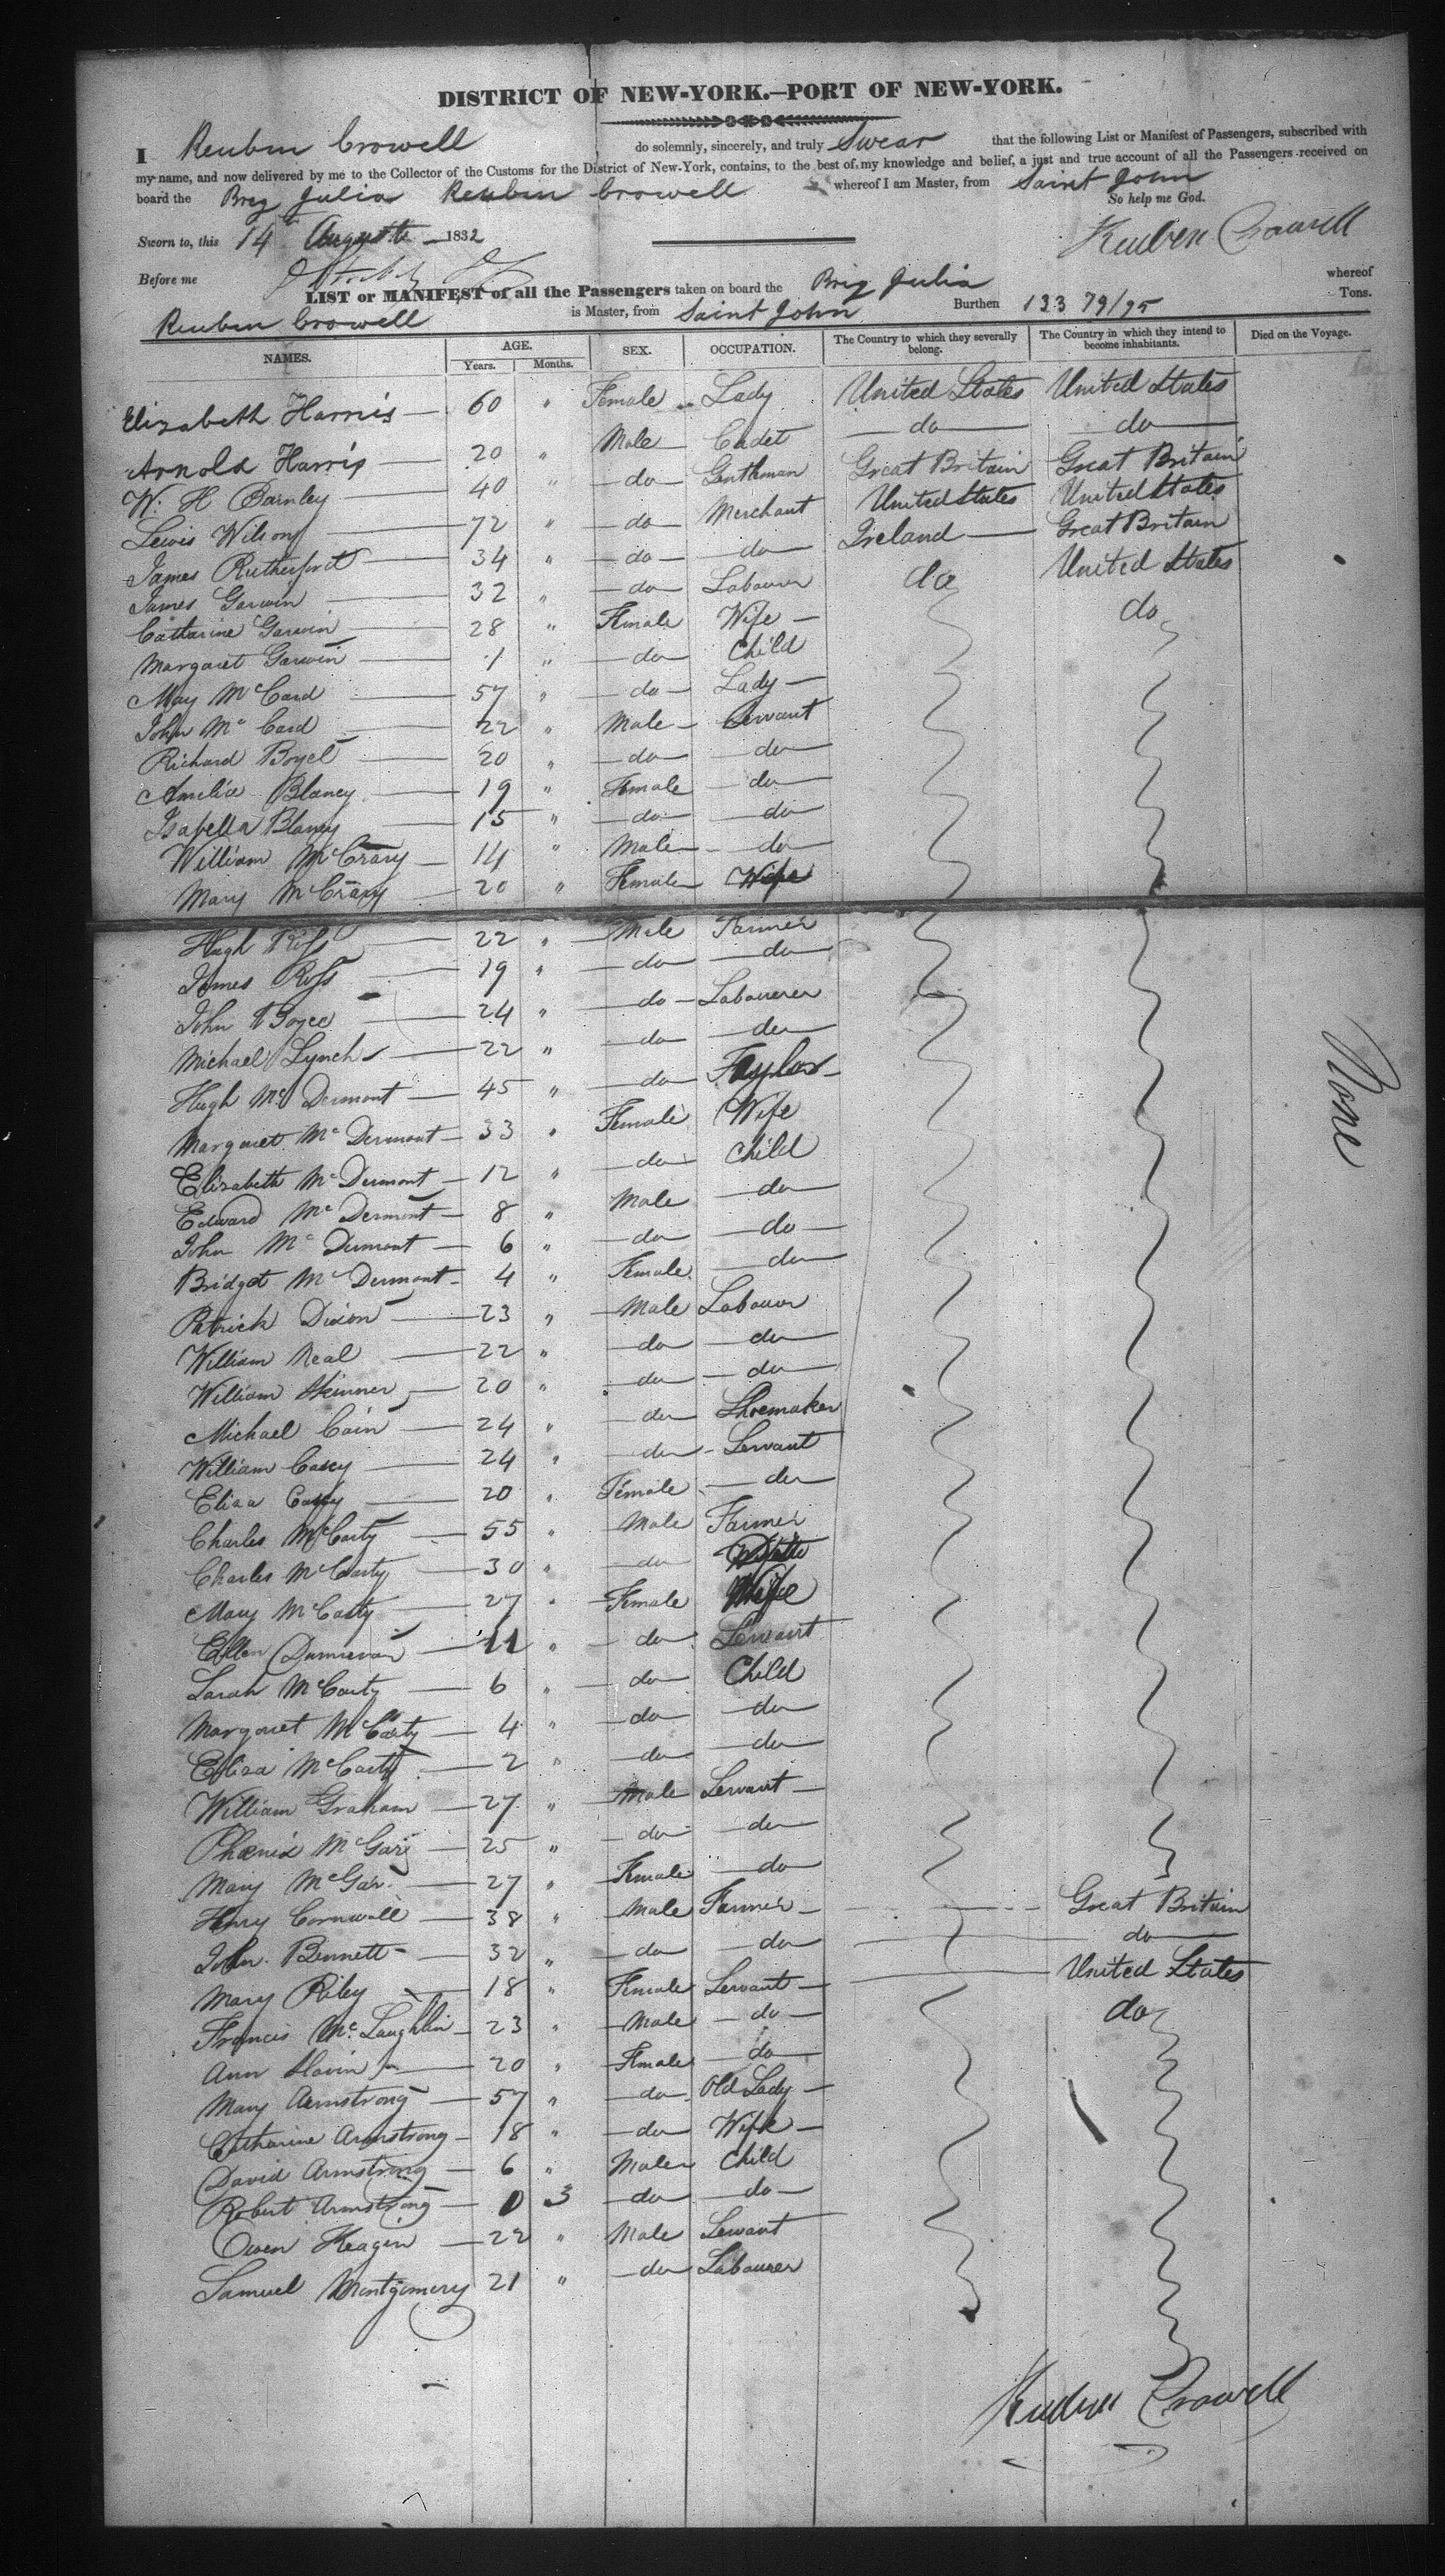 DISTRICT OF NEW-YORK.—PORT OF NEW-YORK.
I Reuben Crowell do solemnly, sincerely, and truly Swear that the following List or Manifest of Passengers, subscribed with
my name, and now delivered by me to the Collector of the Customs for the District of New-York, contains, to the best of my knowledge and belief, a just and true account of all the Passengers received on
board the Brig Julia Reuben Crowell whereof I am Master, from Saint John
So help me God.
Sworn to, this 14th August 1832
Reuben Crowell
Before me
LIST or MANIFEST of all the Passengers taken on board the Brig Julia whereof
Reuben Crowell is Master, from Saint John Burthen 133 79/95 Tons.
NAMES. AGE. Years. Months. SEX. OCCUPATION. The Country to which they severally belong. The Country in which they intend to become inhabitants. Died on the Voyage.
Elizabeth Harris 60 " Female Lady United States United States
Arnold Harris 20 " Male Cadet do do
W. H. 40 " do Gentleman Great Britain Great Britain
Lewis Wilson 72 " do Merchant United States United States
James Rutherford 34 " do do Ireland Great Britain
James Garwin 32 " do Labourer do United States
Catharine Garwin 28 " Female Wife do
Margaret Garwin 1 " do Child
May McCard 57 " do Lady
John McCard 22 " Male Servant
Richard 20 " do do
Amelia Blaney 19 " Female do
Isabella Blaney 15 " do do
William McCrary 14 " Male do
Mary McCrary 20 " Female Wife
Hugh Ross 22 " Male Farmer
James Ross 19 " do do
John Boyce 24 " do Labourer
Michael Lynch 22 " do do
Hugh McDermont 45 " do Taylor
Margaret McDermont 33 " Female Wife
Elizabeth McDermont 12 " do Child
Edward McDermont 8 " Male do
John McDermont 6 " do do
Bridget McDermont 4 " Female do
Patrick Dixon 23 " Male Labourer
William Neal 22 " do do
William Skinner 20 " do do
Michael Cain 24 " do Shoemaker
William Casey 24 " do Servant
Eliza Casey 20 " Female do
Charles McCarty 55 " Male Farmer
Charles McCarty 30 " do
Mary McCarty 27 " Female Wife
Ellen 11 " do Servant
Sarah McCarty 6 " do Child
Margaret McCarty 4 " do do
Eliza McCarty 2 " do do
William Graham 27 " Male Servant
Phoenix McGar 25 " do do
Mary McGar 27 " Female do
Henry Cornwall 38 " Male Farmer Great Britain
John Bennett 32 " do do do
Mary Riley 18 " Female Servant United States
Francis McLaughlin 23 " Male do do
Ann Slavin 20 " Female do
Mary Armstrong 57 " do Old Lady
Catharine Armstrong 18 " do Wife
David Armstrong 6 " Male Child
Robert Armstrong 0 3 do do
Owen Keagin 22 " Male Servant
Samuel Montgomery 21 " do Labourer
None
Reuben Crowell